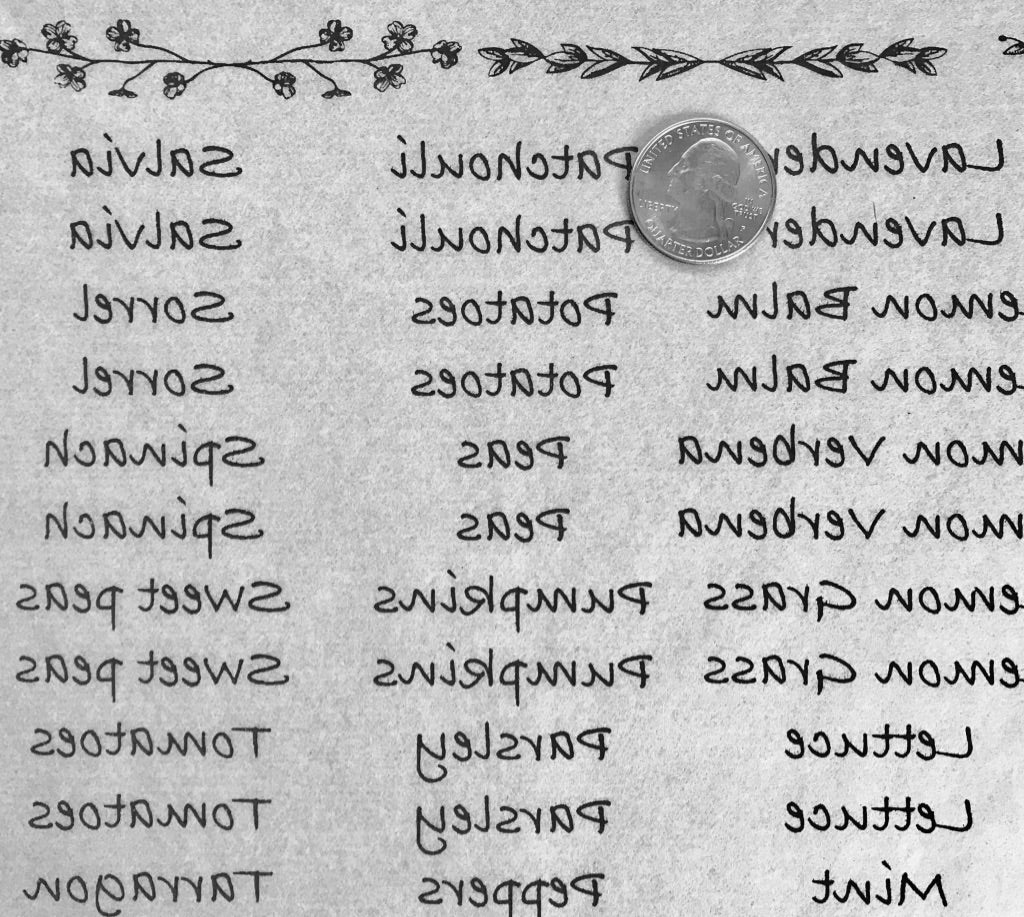 Lavender
Lavender
emon Balm
emon Balm
mon Verbena
mon Verbena
emon Grass
emon Grass
Lettuce
Lettuce
Mint
Patchouli
Patchouli
Potatoes
Potatoes
Peas
Peas
Pumpkins
Pumpkins
Parsley
Parsley
Peppers
Salvia
Salvia
Sorrel
Sorrel
Spinach
Spinach
Sweet peas
Sweet peas
Tomatoes
Tomatoes
Tarragon
UNITED STATES OF AMERICA
LIBERTY
QUARTER DOLLAR